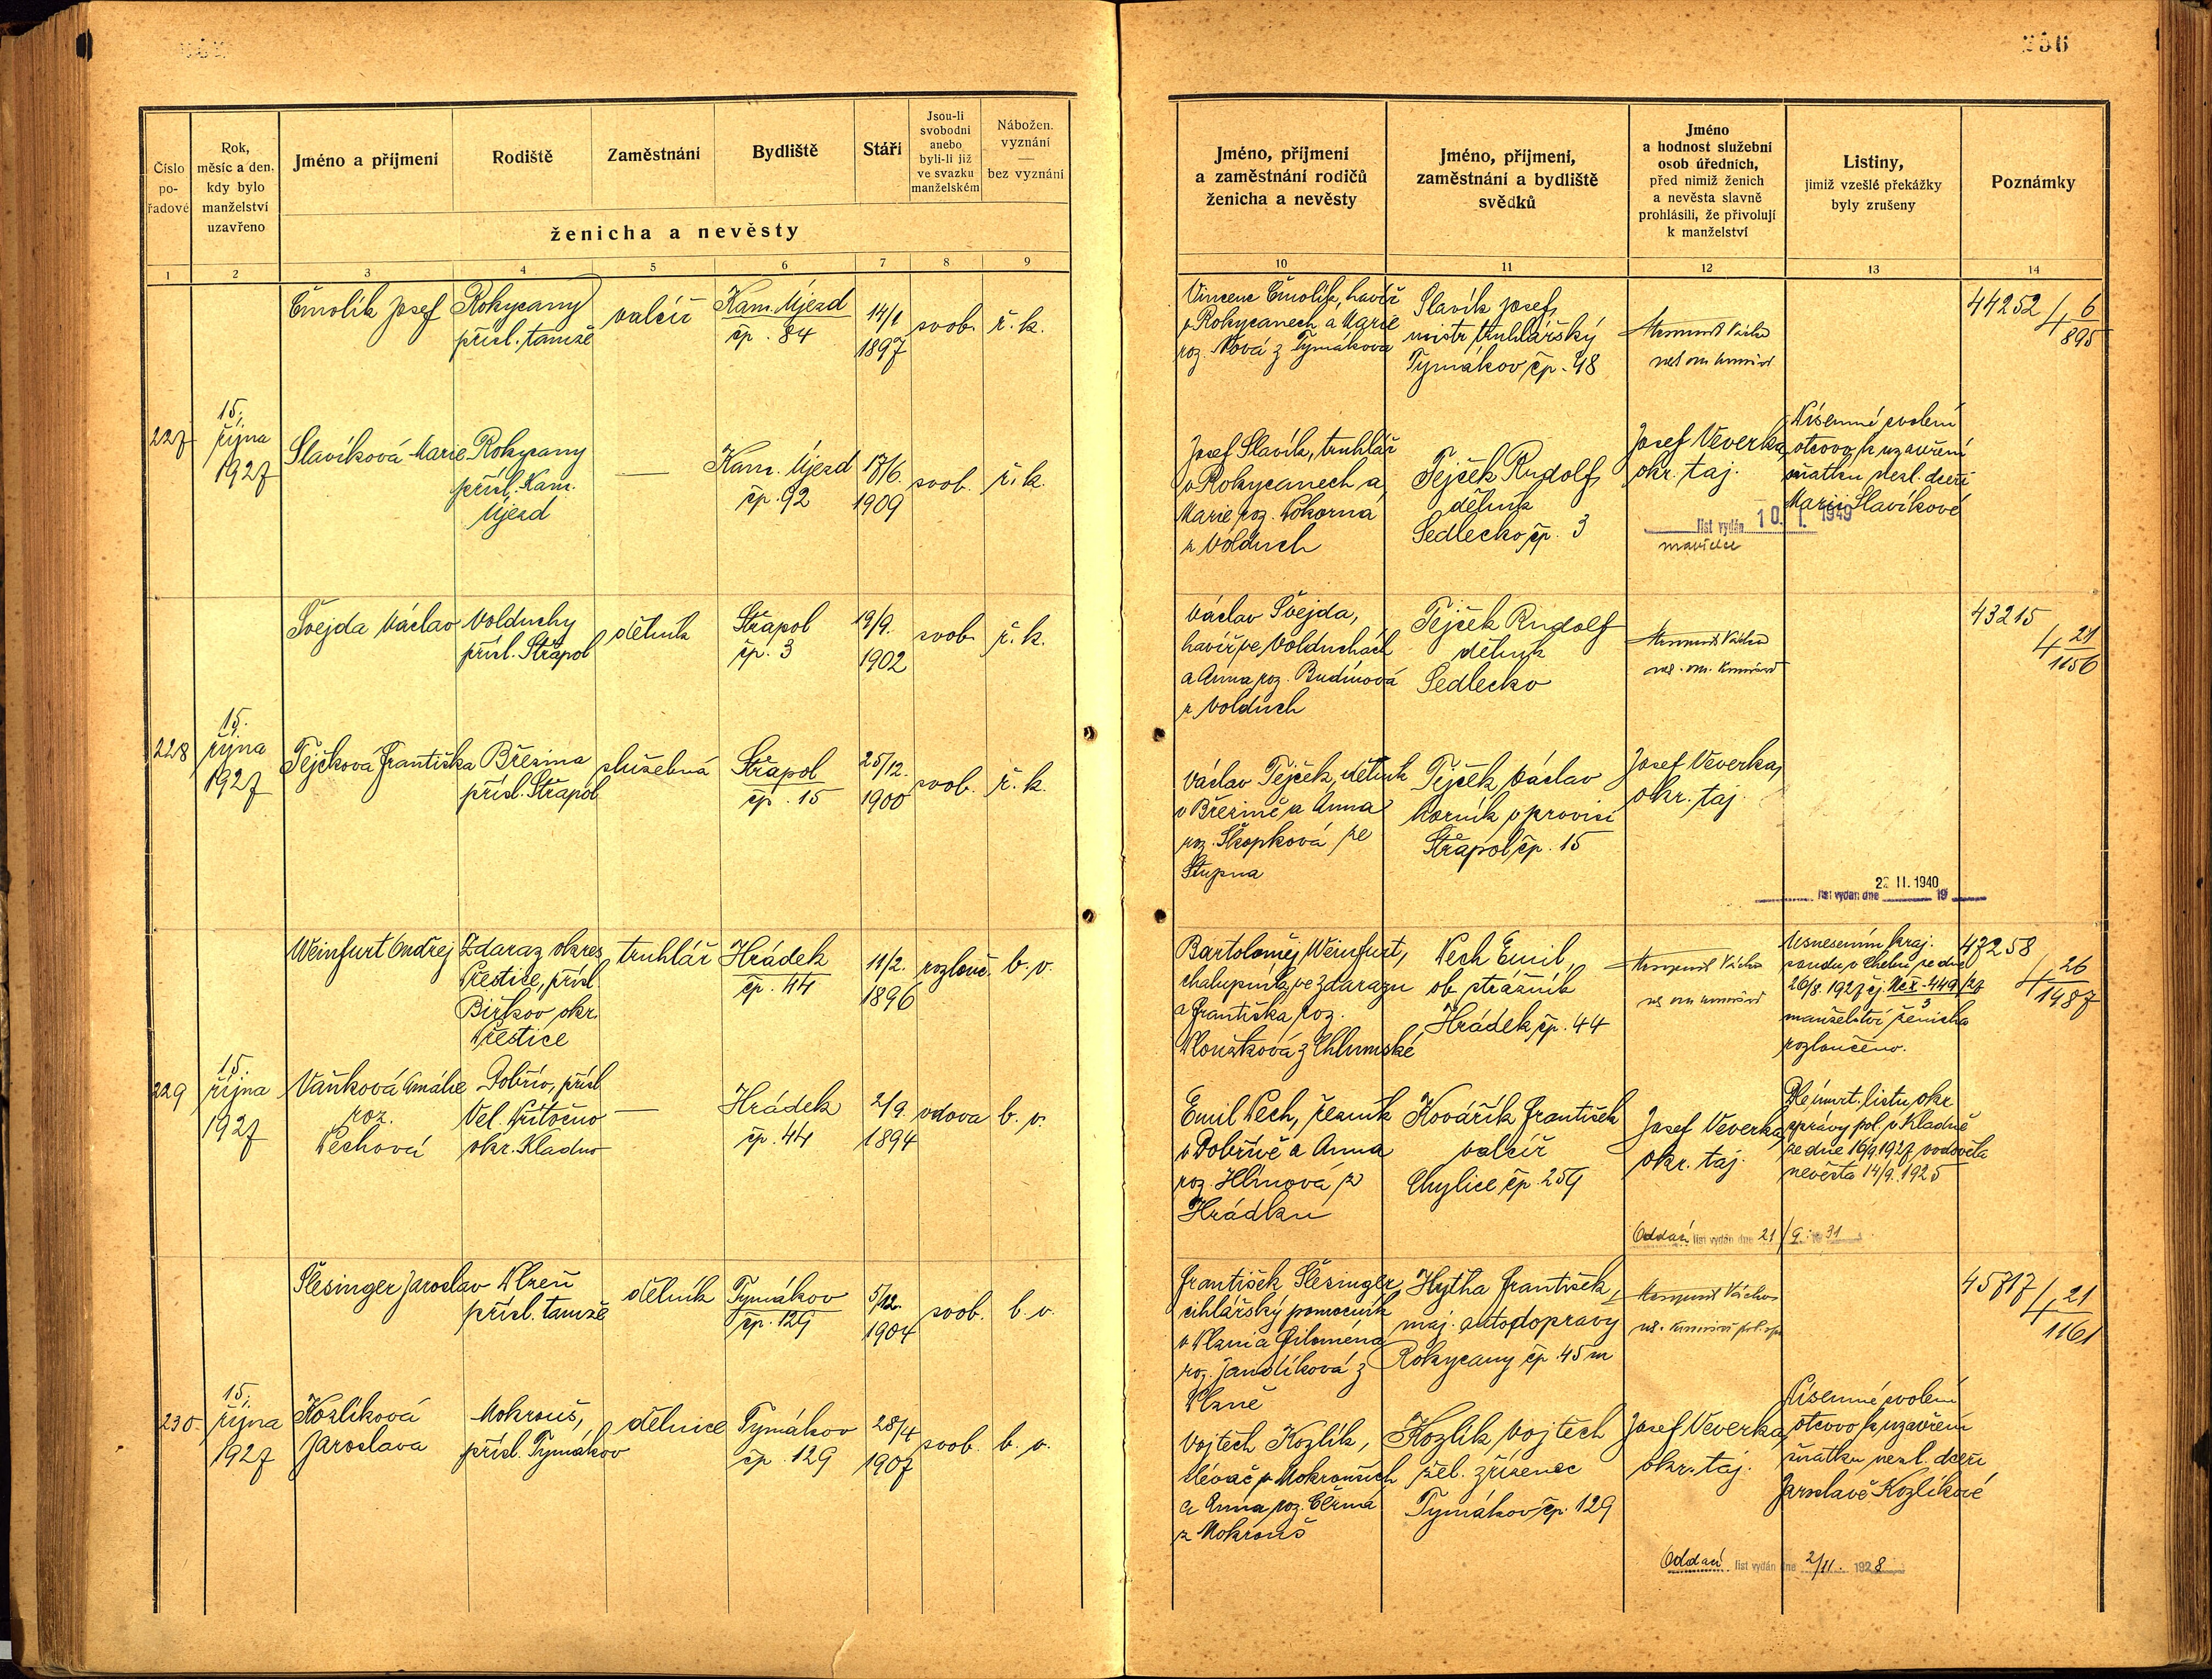 256
Číslo
po-
řadové
Rok,
měsíc a den,
kdy bylo
manželství
uzavřeno
Jméno a příjmení
Rodiště
Zaměstnání
Bydliště
Stáří
Jsou-li
svobodni
anebo
byli-li již
ve svazku
manželském
Nábožen.
vyznání
—
bez vyznání
ženicha a nevěsty
1 2 3 4 5 6 7 8 9
Čmolík Josef
Rokycany
přísl. tamže
valcíř
Kam. Újezd
čp. 84
14/1
1897
svob.
ř. k.
227
15.
října
1927
Slavíková Marie
Rokycany
přísl. Kam.
Újezd
—
Kam. Újezd
čp. 92
17/6.
1909
svob.
ř. k.
Švejda Václav
Volduchy
přísl. Střapol
dělník
Střapol
čp. 3
19/9.
1902
svob.
ř. k.
228
15.
října
1927
Tejčková Františka
Březina
přísl. Střapol
služebná
Střapol
čp. 15
25/12.
1900
svob.
ř. k.
Weinfurt Ondřej
Zdaraz okres
Přestice, přísl.
Birkov okr.
Přestice
truhlář
Hrádek
čp. 44
11/2.
1896
rozlouč.
b. v.
229
15.
října
1927
Vaňková Amálie
roz.
Pechová
Dobřív, přísl.
Vel. Přítočno
okr. Kladno
—
Hrádek
čp. 44
2/9.
1894
vdova
b. v.
Šlesinger Jaroslav
Plzeň
přísl. tamže
dělník
Tymákov
čp. 129
5/12.
1904
svob.
b. v.
230.
15.
října
1927
Kozlíková
Jaroslava
Mokrouš,
přísl. Tymákov
dělnice
Tymákov
čp. 129
28/4
1907
svob.
b. v.
Jméno, příjmení
a zaměstnání rodičů
ženicha a nevěsty
Jméno, příjmení,
zaměstnání a bydliště
svědků
Jméno
a hodnost služební
osob úředních,
před nimiž ženich
a nevěsta slavně
prohlásili, že přivolují
k manželství
Listiny,
jimiž vzešlé překážky
byly zrušeny
Poznámky
10 11 12 13 14
Vincenc Čmolík, havíř
v Rokycanech a Marie
roz. Nová z Tymákova
Slavík Josef,
mistr truhlářský
Tymákov čp. 48
44252
4 6/895
Josef Slavík, truhlář
v Rokycanech a
Marie roz. Pokorná
z Volduch
Tejček Rudolf,
dělník
Sedlecko čp. 3
Josef Veverka,
okr. taj.
Písemné svolení
otcovo k uzavření
sňatku nezl. dceři
Marii Slavíkové
list vydán 10. I. 1949
Václav Švejda,
havíř ve Volduchách
a Anna roz. Budínová
z Volduch
Tejček Rudolf
dělník
Sedlecko
43215
4 21/1156
Václav Tejček, dělník
v Březině a Anna
roz. Skopková ze
Stupna
Tejček Václav
horník v provisi
Střapol čp. 15
Josef Veverka,
okr. taj.
list vydán dne 22 II. 1940 19
Bartoloměj Weinfurt,
chalupník ve Zdarazu
a Františka roz.
z Chlumské
Pech Emil,
ob. strážník
Hrádek čp. 44
Usnesením kraj.
soudu v Chebu ze dne
26/8. 1927 čj. Nc X-449/27
3
manželství ženicha
rozloučeno.
47258
4 26/1487
Emil Pech, řezník
v Dobřívě a Anna
roz. Hlinová z
Hrádku
Kovářík František
valcíř
čp. 259
Josef Veverka,
okr. taj.
Dle úmrt. listu okr.
správy pol. v Kladně
ze dne 16/9 1927 ovdověla
nevěsta 14/9. 1925
Oddací list vydán dne 21/9. 1931
František Šlesinger,
cihlářský pomocník
v Plzni a Filoména
roz. Jandíková z
Plzně
Hytha František,
maj. autodopravy
Rokycany čp. 45
45717
4 21/1161
Vojtěch Kozlík,
slévač v Mokrouších
a Anna roz. Černá
z Mokrouš
Kozlík Vojtěch
žel. zřízenec
Tymákov čp. 129
Josef Veverka,
okr. taj.
Písemné svolení
otcovo k uzavření
sňatku nezl. dceři
Jaroslavě Kozlíkové
Oddací list vydán dne 2/11. 1928